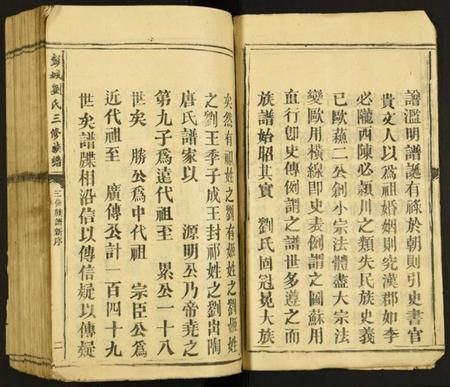 譜濫明譜誕有祿於朝則引史書官
貴文人以為祖婚姻則究漢郡如李
必隴西陳必潁川之類失民族史義
已歐蘇二公創小宗法體盡大宗法
變歐用橫線即史表例謂之圖蘇用
直行卽史傳例謂之譜世多遵之而
族譜始昭其實 劉氏固冠冕大族
彭城劉氏三修族譜
三修族譜新序
二
矣然有祖姓之劉有姬姓之劉
之劉王季子成王封祁姓之劉出陶
唐氏譜家以 源明公乃帝堯之
第九子爲遠代祖至 累公一十八
世矣 勝公爲中代祖 宗臣公爲
近代祖至 廣傳公計一百四十九
世矣譜牒相沿信以傳信疑以傳疑